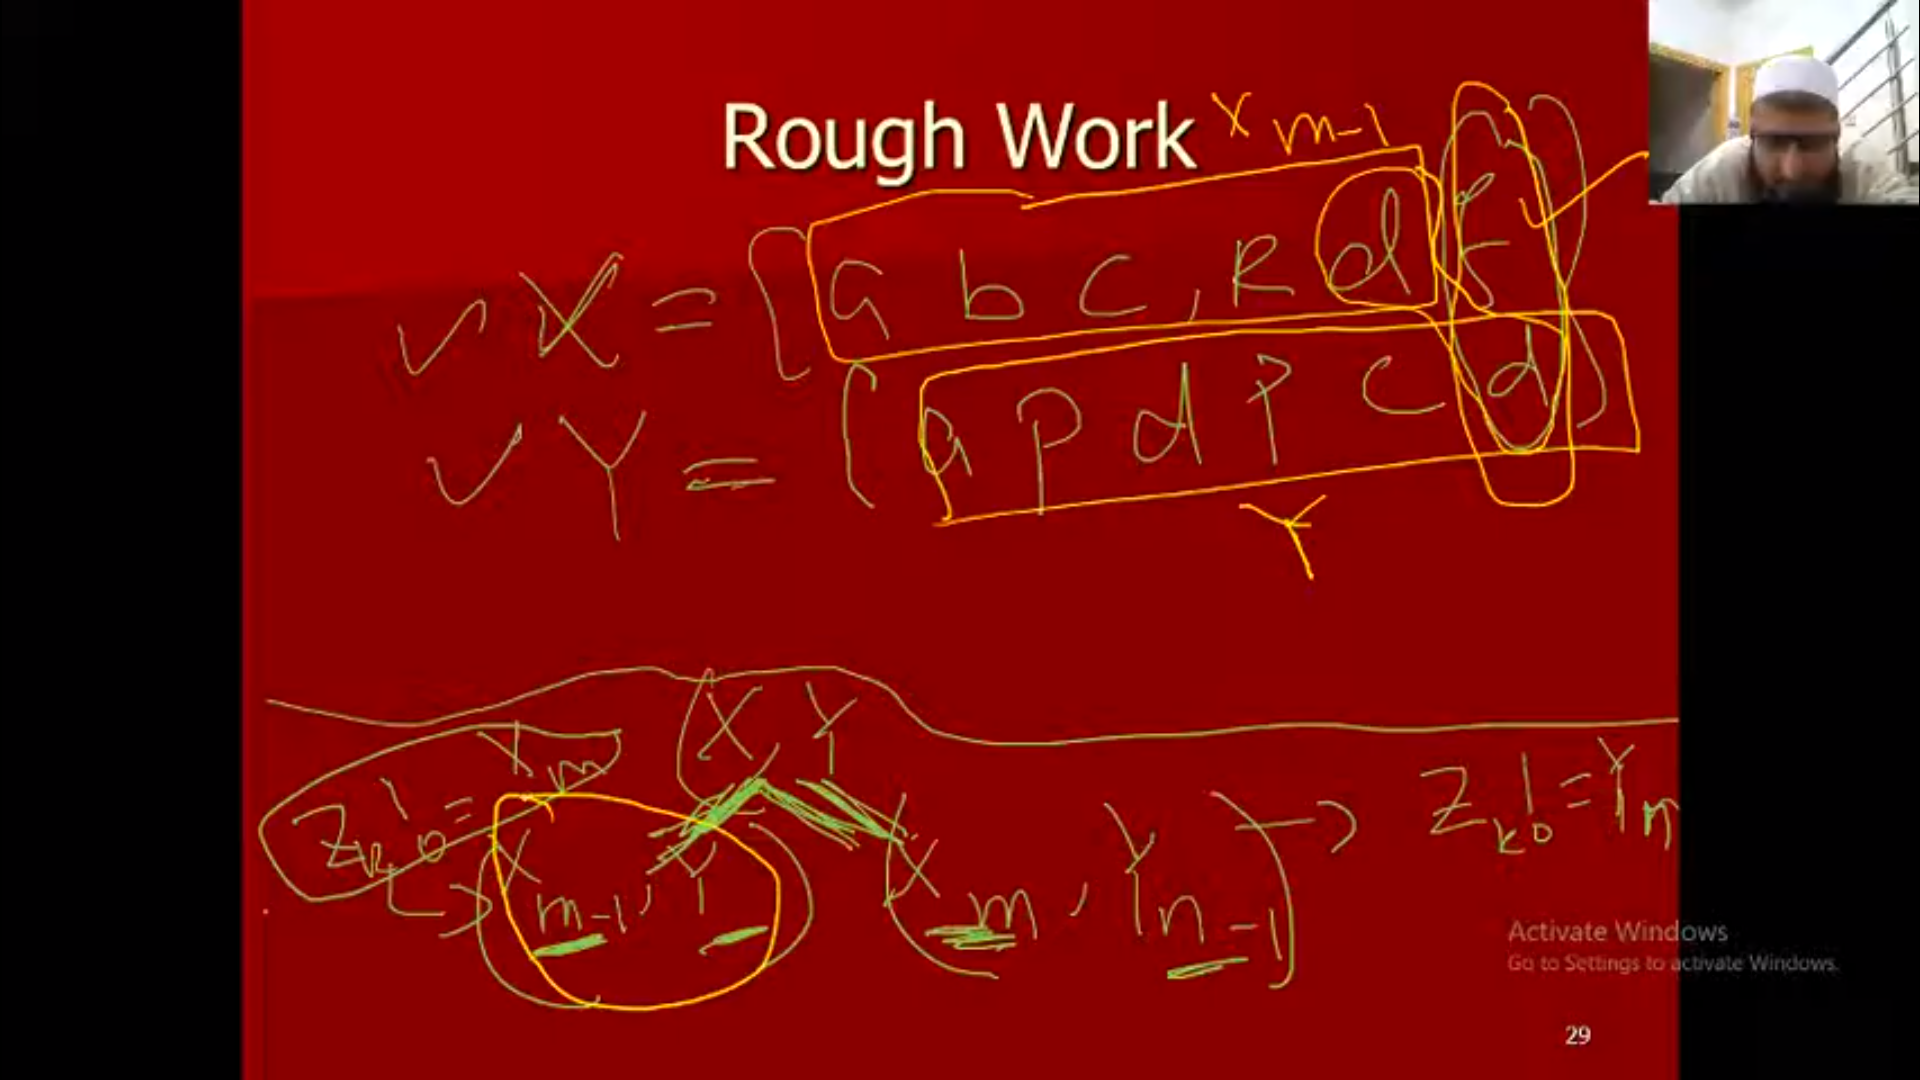 Rough Work X m-1
X = { a b c , R d f }
Y = { a p d p c d }
Y
X , Y
Z k != X m
X m-1 , Y
X m , Y n-1 → Z k != Y n
Activate Windows
Go to Settings to activate Windows.
29